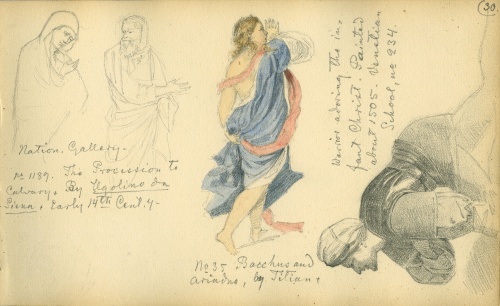 30.
Nation. Gallery.
No 1189. The Procession to
Calvary. By Ugolino da
Siena. Early 14th Cent.y.
No 35 Bacchus and
Ariadne, by Titian.
Warior adoring the in-
fant Christ. Painted
about 1505. Venetian
School, no 234.